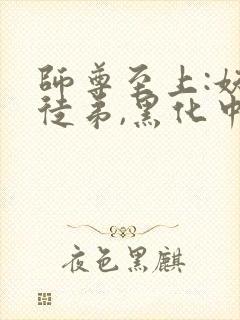 師尊至上:妖
徒弟,黑化中
夜色黑麒